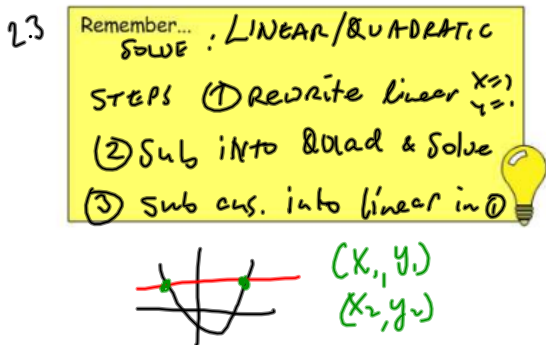 2.3
Remember...
SOLVE : LINEAR/QUADRATIC
STEPS ① Rewrite linear x=? y=?
② Sub into Quad & Solve
③ Sub ans. into linear in ①
(x₁, y₁)
(x₂, y₂)